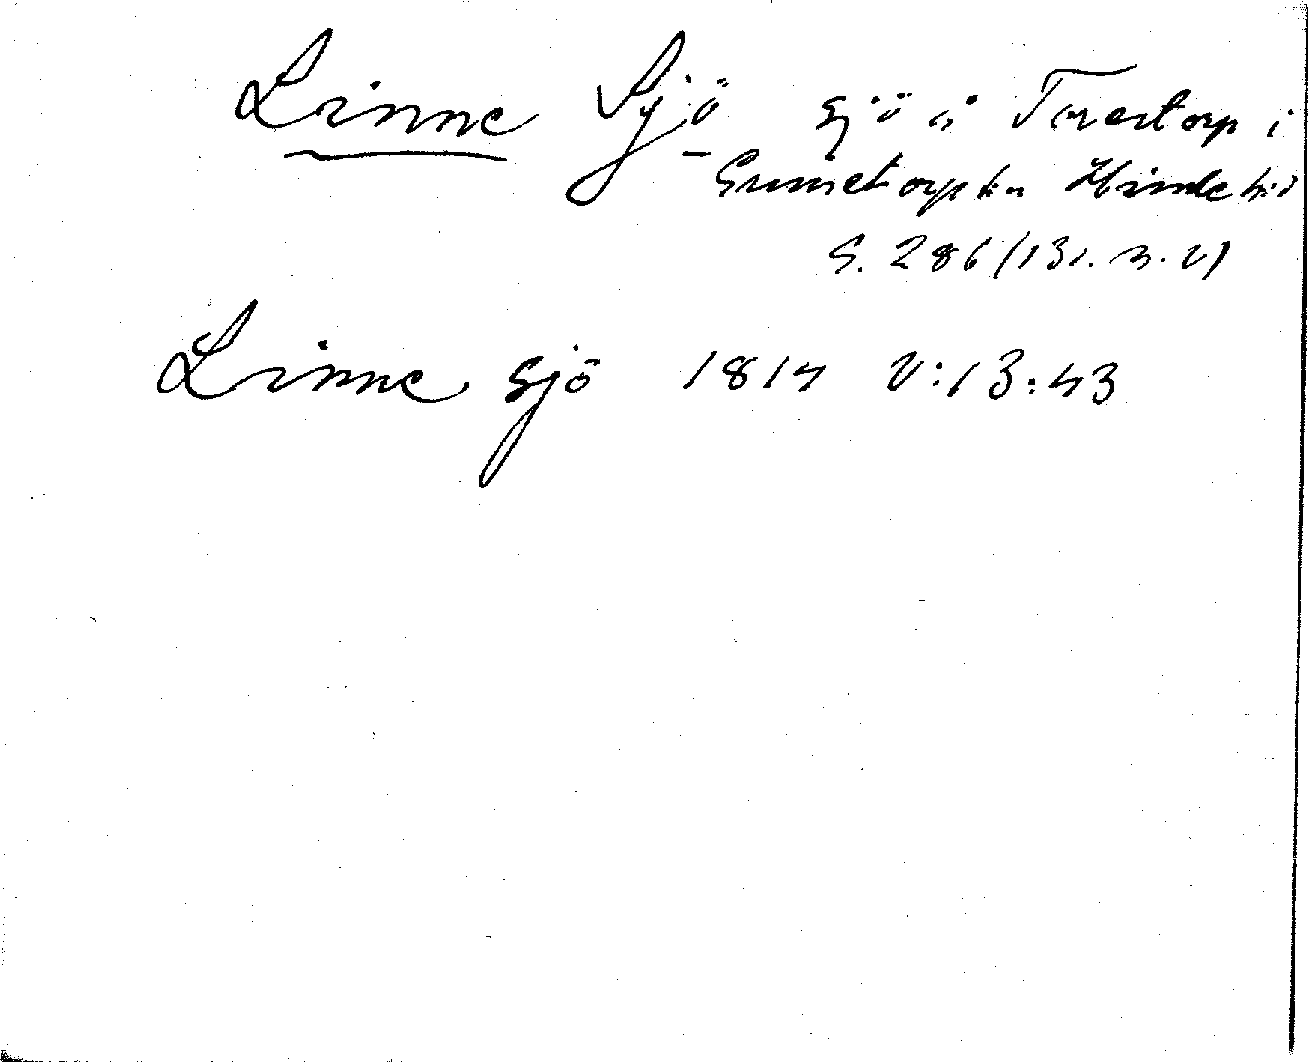 Linne Sjö sjö å Torestorp i
Sunnetorp Himle hd
S. 286 (131. 3. V)
Linne sjö 1814 V:13:43